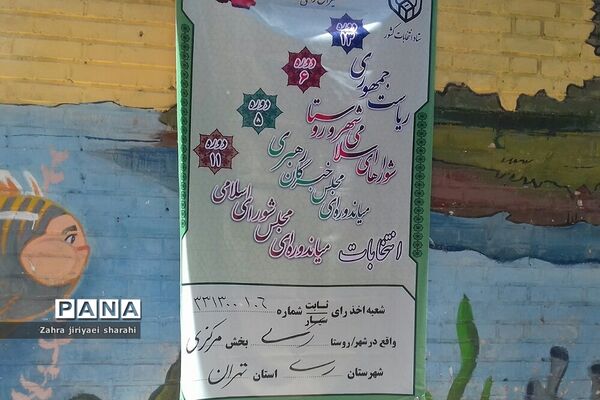 ستاد انتخابات کشور
دوره ۱۳
ریاست جمهوری
دوره ۶
شوراهای اسلامی شهر و روستا
دوره ۵
میاندوره‌ای مجلس خبرگان رهبری
دوره ۱۱
میاندوره‌ای مجلس شورای اسلامی
انتخابات
شعبه اخذ رای ثابت سیار شماره ۳۳۱۳۰۰۱۰۶
واقع در شهر/ روستا ری بخش مرکزی
شهرستان ری استان تهران
PANA
Zahra jiriyaei sharahi